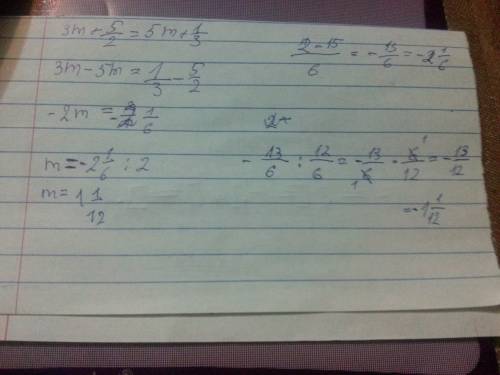 3m + 5/2 = 5m + 1/3
3m - 5m = 1/3 - 5/2
-2m = -2 1/6
m = -2 1/6 : 2
m = 1 1/12
2-15/6 = -13/6 = -2 1/6
- 13/6 : 12/6 = -13/6 · 6/12 = -13/12
= -1 1/12